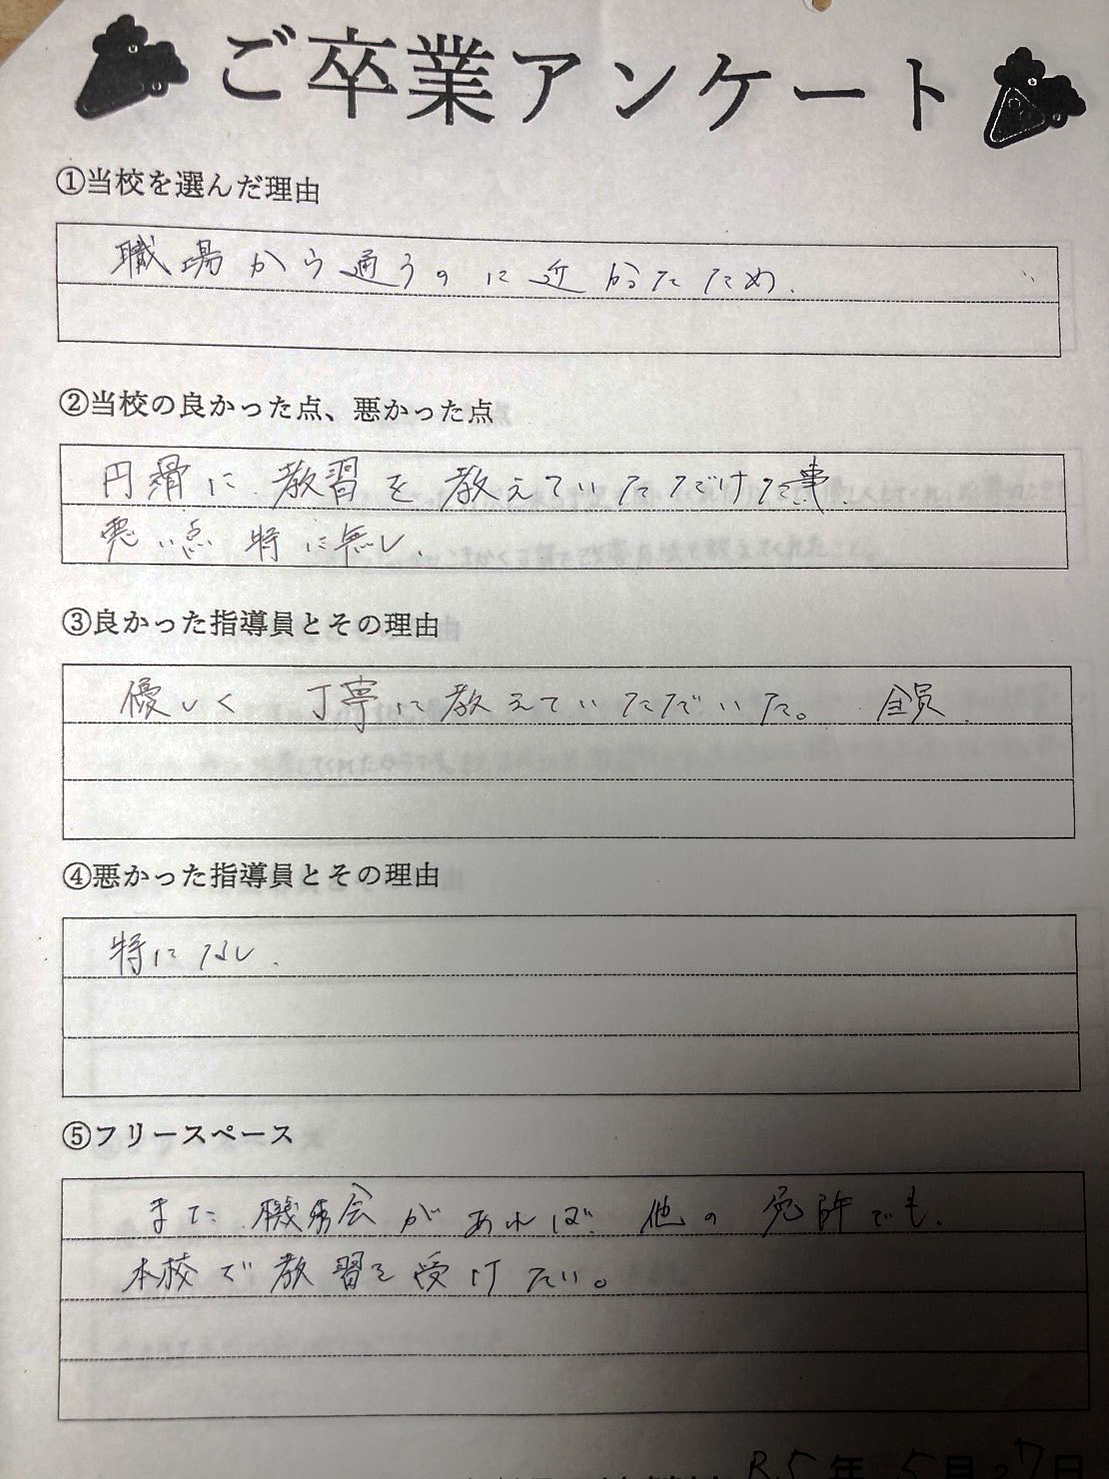 ご卒業アンケート
①当校を選んだ理由
職場から通うのに近かったため.
②当校の良かった点、悪かった点
円滑に教習を教えていただけた事.
悪い点 特に無し.
③良かった指導員とその理由
優しく 丁寧に教えていただいた。 全員.
④悪かった指導員とその理由
特になし.
⑤フリースペース
また機会があれば 他の免許でも.
本校で教習を受けたい。
R5年 5月27日